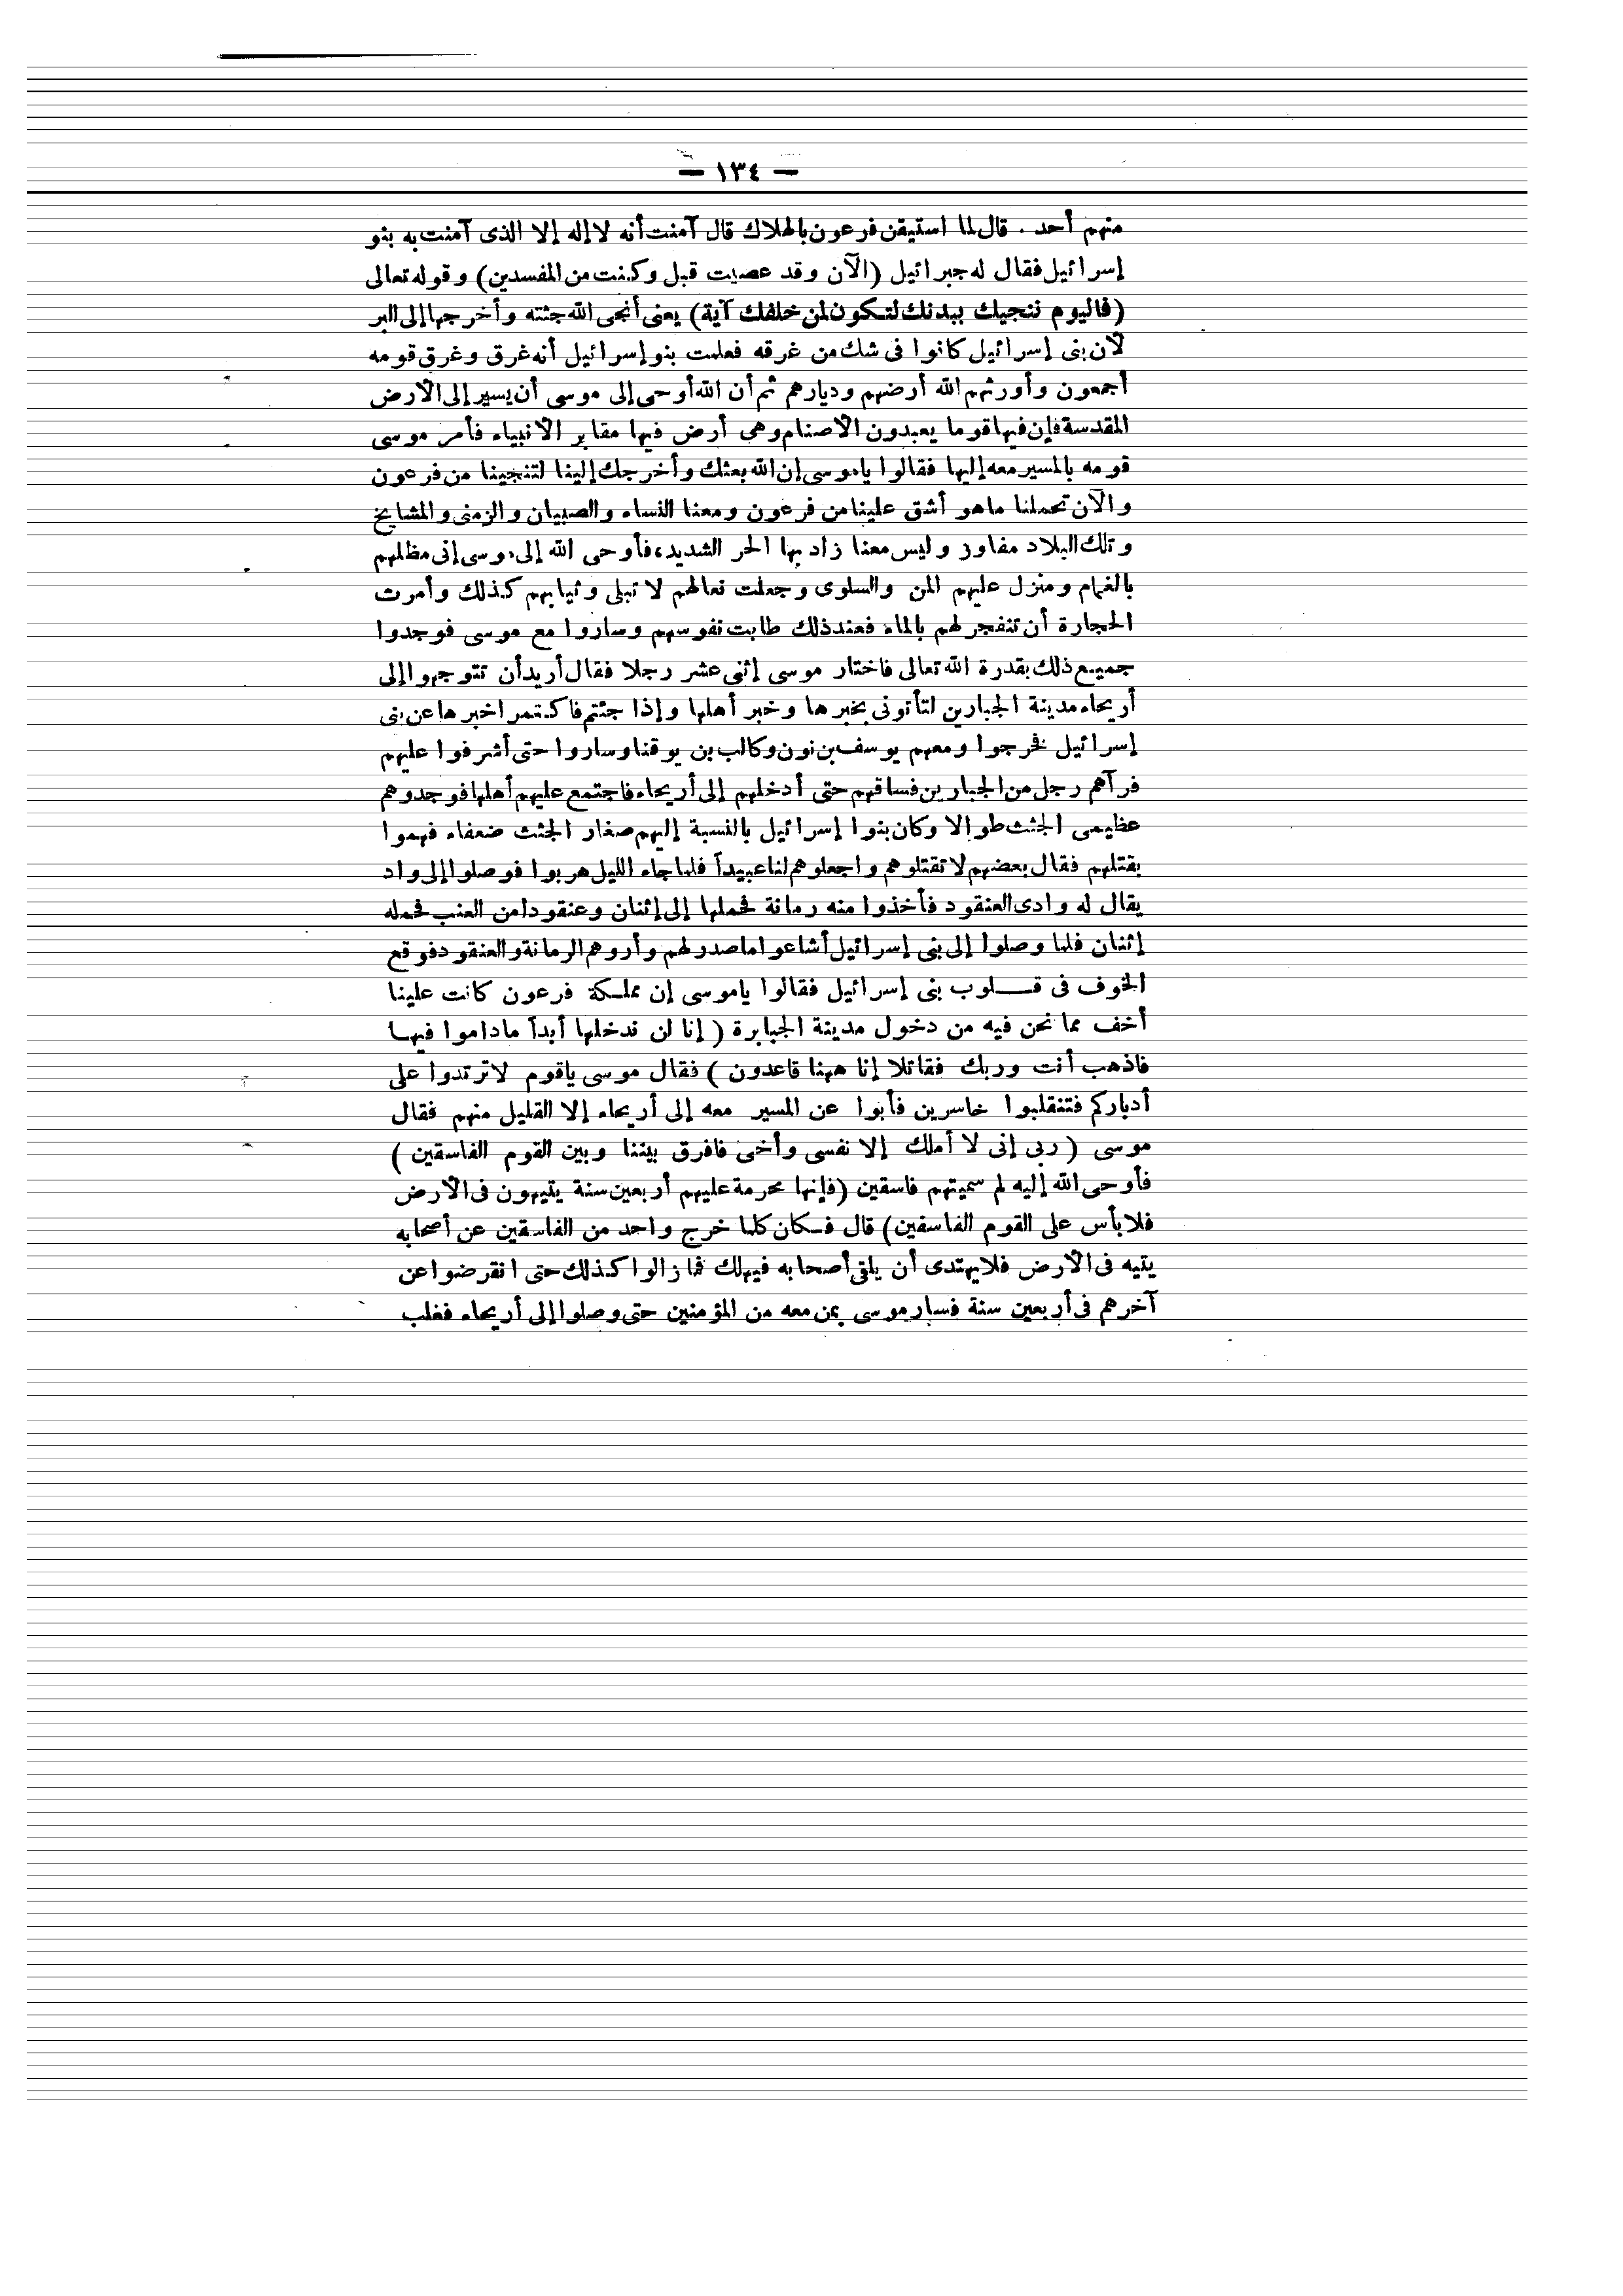 — ١٣٤ —
منهم أحد . قال لما استيقن فرعون بالهلاك قال آمنت أنه لا إله إلا الذى آمنت به بنو
إسرائيل فقال له جبرائيل (الآن وقد عصيت قبل وكنت من المفسدين) وقوله تعالى
(فاليوم ننجيك ببدنك لتكون لمن خلفك آية) يعنى أنجى الله جثته وأخرجها إلى البر
لأن بنى إسرائيل كانوا فى شك من غرقه فعلمت بنو إسرائيل أنه غرق وغرق قومه
أجمعون وأورثهم الله أرضهم وديارهم ثم أن الله أوحى إلى موسى أن يسير إلى الأرض
المقدسة فإن فيها قوما يعبدون الأصنام وهى أرض فيها مقابر الأنبياء فأمر موسى
قومه بالمسير معه إليها فقالوا ياموسى إن الله بعثك وأخرجك إلينا لتنجينا من فرعون
والآن تحملنا ماهو أشق علينا من فرعون ومعنا النساء والصبيان والزمنى والمشايخ
وتلك البلاد مفاوز وليس معنا زاد بها الحر الشديد، فأوحى الله إلى موسى إنى مظلهم
بالغمام ومنزل عليهم المن والسلوى وجعلت نعالهم لا تبلى وثيابهم كذلك وأمرت
الحجارة أن تنفجر لهم بالماء فعند ذلك طابت نفوسهم وساروا مع موسى فوجدوا
جميع ذلك بقدرة الله تعالى فاختار موسى إثنى عشر رجلا فقال أريد أن تتوجهوا إلى
أريحاء مدينة الجبارين لتأتونى بخبرها وخبر أهلها وإذا جئتم فاكتمرا خبرها عن بنى
إسرائيل فخرجوا ومعهم يوسف بن نون وكالب بن يوقنا وساروا حتى أشرفوا عليهم
فرآهم رجل من الجبارين فساقهم حتى أدخلهم إلى أريحاء فاجتمع عليهم أهلها فوجدوهم
عظيمى الجثث طوالا وكان بنوا إسرائيل بالنسبة إليهم صغار الجثث ضعفاء فهموا
بقتلهم فقال بعضهم لا تقتلوهم واجعلوهم لنا عبيداً فلما جاء الليل هربوا فوصلوا إلى واد
يقال له وادى العنقود فأخذوا منه رمانة فحملها إلى إثنان وعنقودا من العنب فحمله
إثنان فلما وصلوا إلى بنى إسرائيل أشاعوا ماصدر لهم وأروهم الرمانة والعنقود فوقع
الخوف فى قـــلوب بنى إسرائيل فقالوا ياموسى إن مملكة فرعون كانت علينا
أخف مما نحن فيه من دخول مدينة الجبابرة ( إنا لن ندخلها أبداً ماداموا فيها
فاذهب أنت وربك فقاتلا إنا ههنا قاعدون ) فقال موسى ياقوم لاترتدوا على
أدباركم فتنقلبوا خاسرين فأبوا عن المسير معه إلى أريحاء إلا القليل منهم فقال
موسى ( ربى إنى لا أملك إلا نفسى وأخى فافرق بيننا وبين القوم الفاسقين )
فأوحى الله إليه لم سميتهم فاسقين (فإنها محرمة عليهم أربعين سنة يتيهون فى الأرض
فلا بأس على القوم الفاسقين) قال فكان كلما خرج واحد من الفاسقين عن أصحابه
يتيه فى الأرض فلا يهتدى أن يلقى أصحابه فيهلك فما زالوا كذلك حتى انقرضوا عن
آخرهم فى أربعين سنة فسار موسى بمن معه من المؤمنين حتى وصلوا إلى أريحاء فغلب